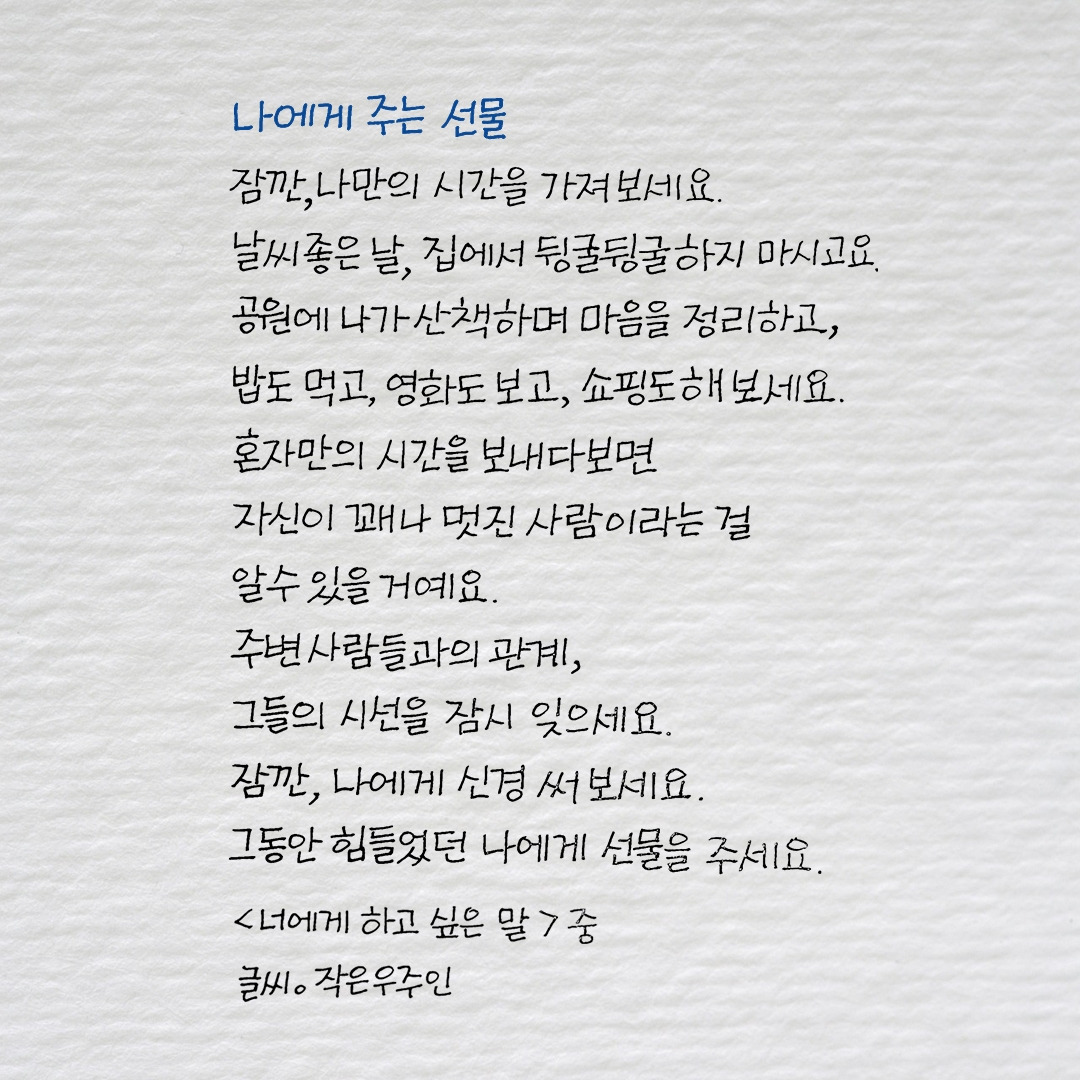 나에게 주는 선물
잠깐, 나만의 시간을 가져보세요.
날씨 좋은 날, 집에서 뒹굴뒹굴하지 마시고요.
공원에 나가 산책하며 마음을 정리하고,
밥도 먹고, 영화도 보고, 쇼핑도 해보세요.
혼자만의 시간을 보내다보면
자신이 꽤나 멋진 사람이라는 걸
알 수 있을 거예요.
주변 사람들과의 관계,
그들의 시선을 잠시 잊으세요.
잠깐, 나에게 신경 써 보세요.
그동안 힘들었던 나에게 선물을 주세요.
<너에게 하고 싶은 말> 중
글씨。작은우주인